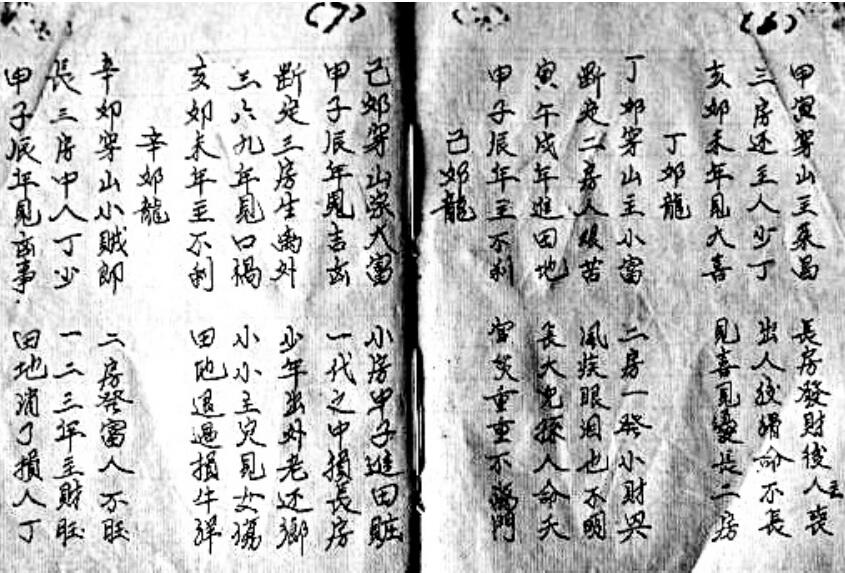 (6)
甲寅穿山主榮昌 長房發財後人喪
三房还主人少丁 出人後 命不長
亥卯未年見大喜 見喜見 長二房
丁卯龍
丁卯穿山主小富 二房一發小財興
断定二房人很苦 風疾眼泪也不明
寅午戌年進田地 長大兒孫人命夭
甲子辰年主不利 官災重重不 門
己卯龍
(7)
己卯穿山 大富 小房甲子進田
甲子辰年見吉凶 一代之中損長房
断定三房生离外 少年出外老还鄉
三六九年見口禍 小小主灾見女
亥卯未年主不利 田地退过損牛
辛卯龍
辛卯穿山小賊郎 二房發富人不旺
長三房中人丁少 一二三年主財旺
甲子辰年見凶事. 田地消了損人丁